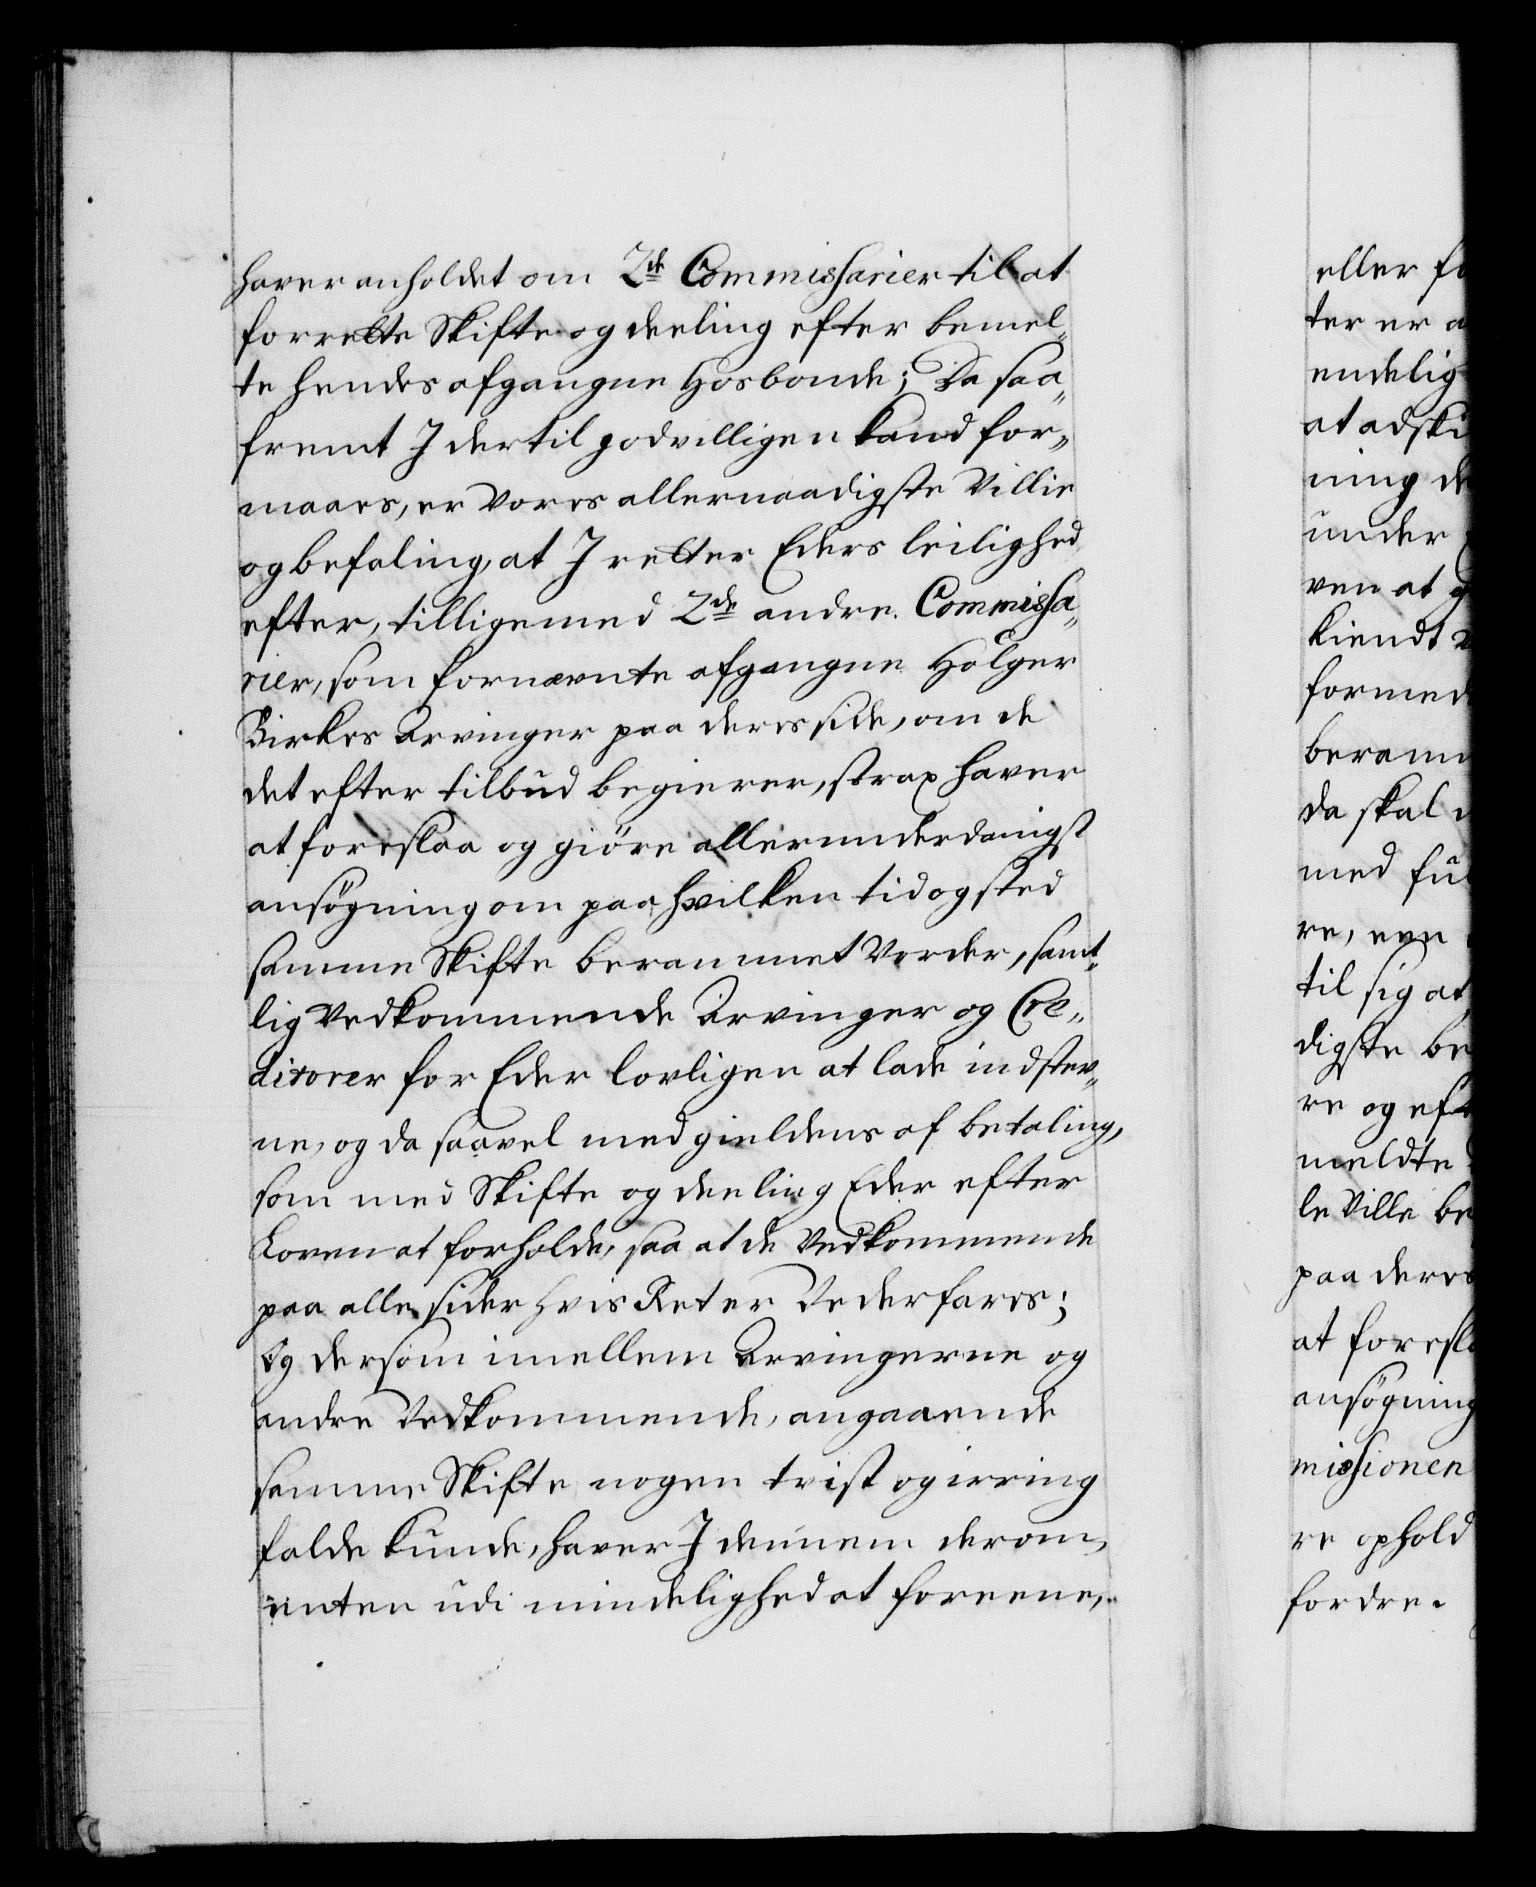 haver anholdet om 2de Commissarier til at
forrette Skifte og deeling efter bemel„
te hendes afgangne Hosbonde; Da saa„
fremt I dertil godvilligen kand for„
maaes, er Vores allernaadigste Villie
og befaling, at I retter Eders leilighed
efter, tilligemed 2de andre Commissa„
rier, som fornævnte afgangne Holger
Birkes Arvinger paa deres side, om de
det efter tilbud begierer, strax haver
at foreslaa og giöre allerunderdanigst
ansögning om paa hvilken tid og sted
samme Skifte berammet Vorder, samt„
lig Vedkommende Arvinger og Cre„
ditorer for Eder lovligen at lade indstev„
ne, og da saavel med gieldens af betaling,
som med Skifte og deeling Eder efter
Loven at forholde, saa at de Vedkommende
paa alle sider hvis Ret er Vederfares;
Og dersom imellem Arvingerne og
andre Vedkommende, angaaende
samme Skifte nogen tvist og irring
falde kunde, haver I dennem derom,
enten udi mindelighed at foreene,
eller fo
ter er a
endelig
at adski
ning de
under
ven at g
kiendt
formed
beram
da skal
med ful
re, een
til sig at
digste be
re og eft
meldte
le Ville be
paa deres
at foresla
ansögning
missionen
re ophold
fordre.